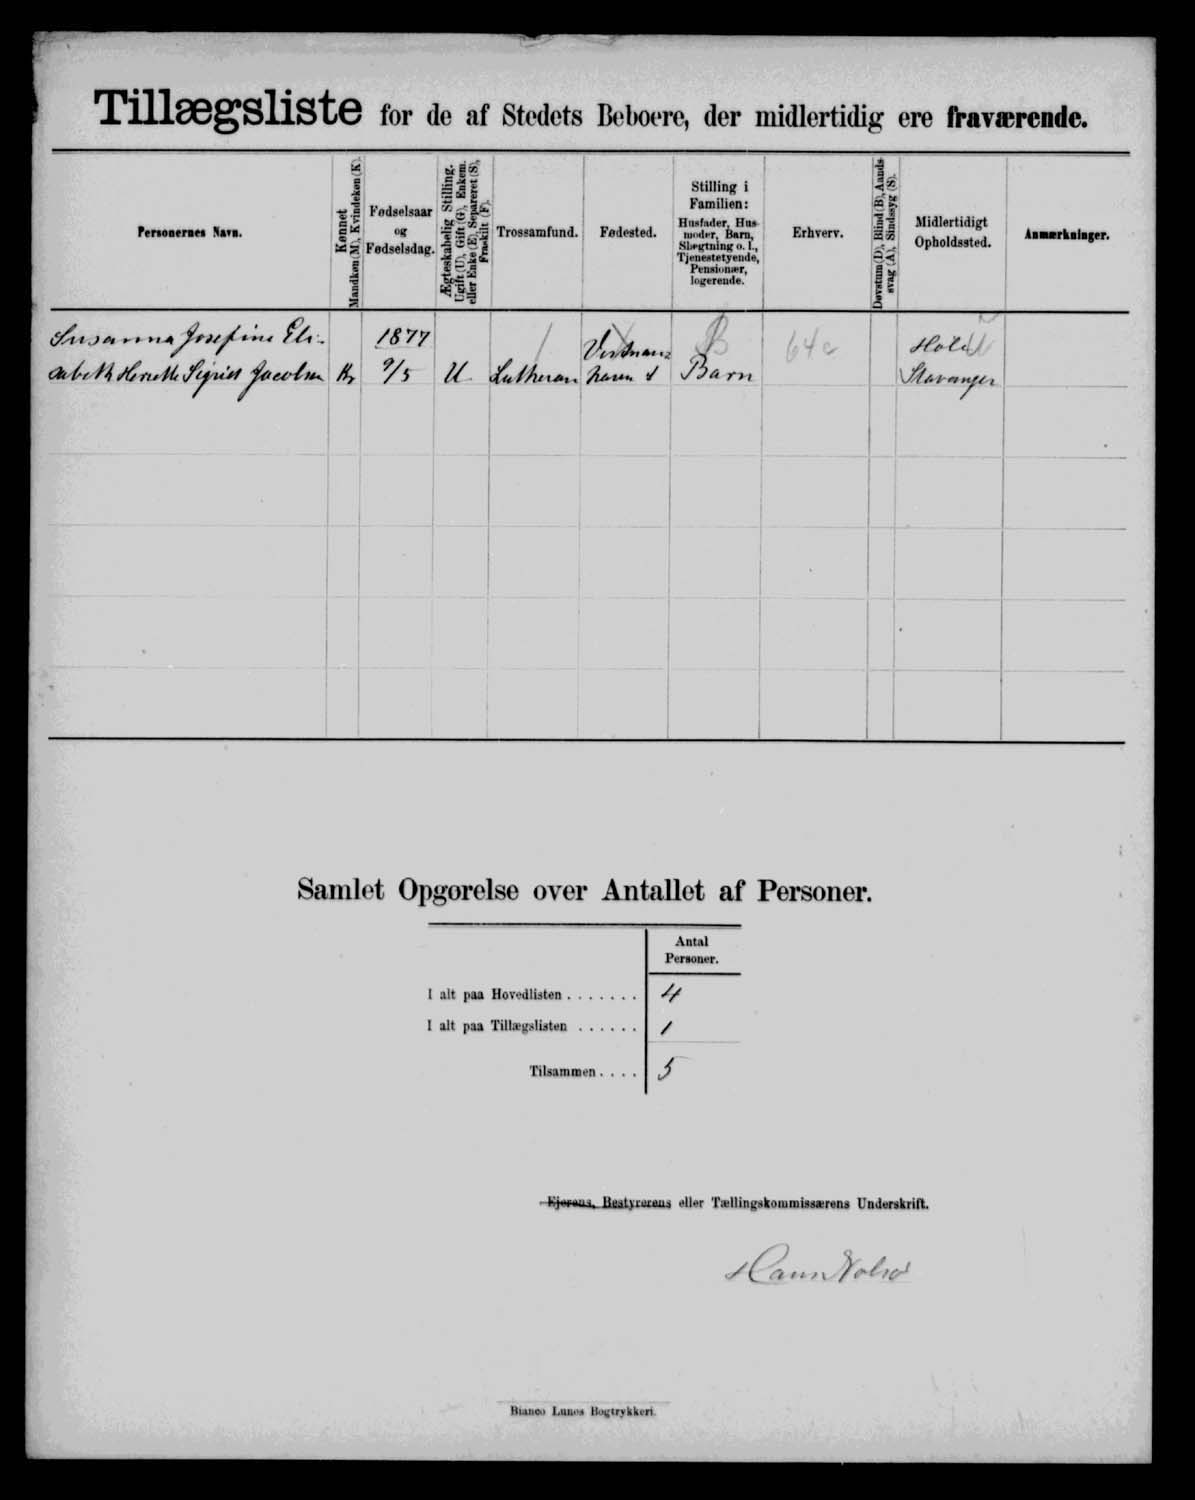 Tillægsliste for de af Stedets Beboere, der midlertidig ere fraværende.
Personernes Navn.
Kønnet
Mandkøn (M), Kvindekøn (K).
Fødselsaar
og
Fødselsdag.
Ægteskabelig Stilling.
Ugift (U), Gift (G), Enkem.
eller Enke (E), Separeret (S),
Fraskilt (F).
Trossamfund.
Fødested.
Stilling i
Familien:
Husfader, Hus-
moder, Barn,
Slægtning o. l.,
Tjenestetyende,
Pensionær,
logerende.
Erhverv.
Døvstum (D), Blind (B), Aands-
svag (A), Sindssyg (S).
Midlertidigt
Opholdssted.
Anmærkninger.
Susanna Josefine Eli-
sabeth Sigrid Jacobsen
1877
9/5
U
Lutheran
Vestman-
havn
B
Barn
64a
Stavanger
Samlet Opgørelse over Antallet af Personer.
Antal
Personer.
I alt paa Hovedlisten . . . . . . . 4
I alt paa Tillægslisten . . . . . . 1
Tilsammen . . . . 5
Ejerens, Bestyrerens eller Tællingskommissærens Underskrift.
Bianco Lunos Bogtrykkeri.